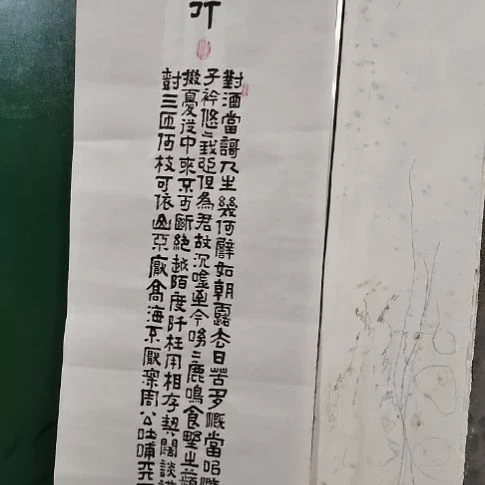 行
對酒當謌人生幾何譬如朝露去日苦多慨當㠯慷
子衿悠〻我心但為君故沉唫至今呦〻鹿鳴食野之蘋
掇憂從中來不可斷絕越陌度阡枉用相存契闊談
尌三匝何枝可依山不厭高海不厭深周公吐哺天